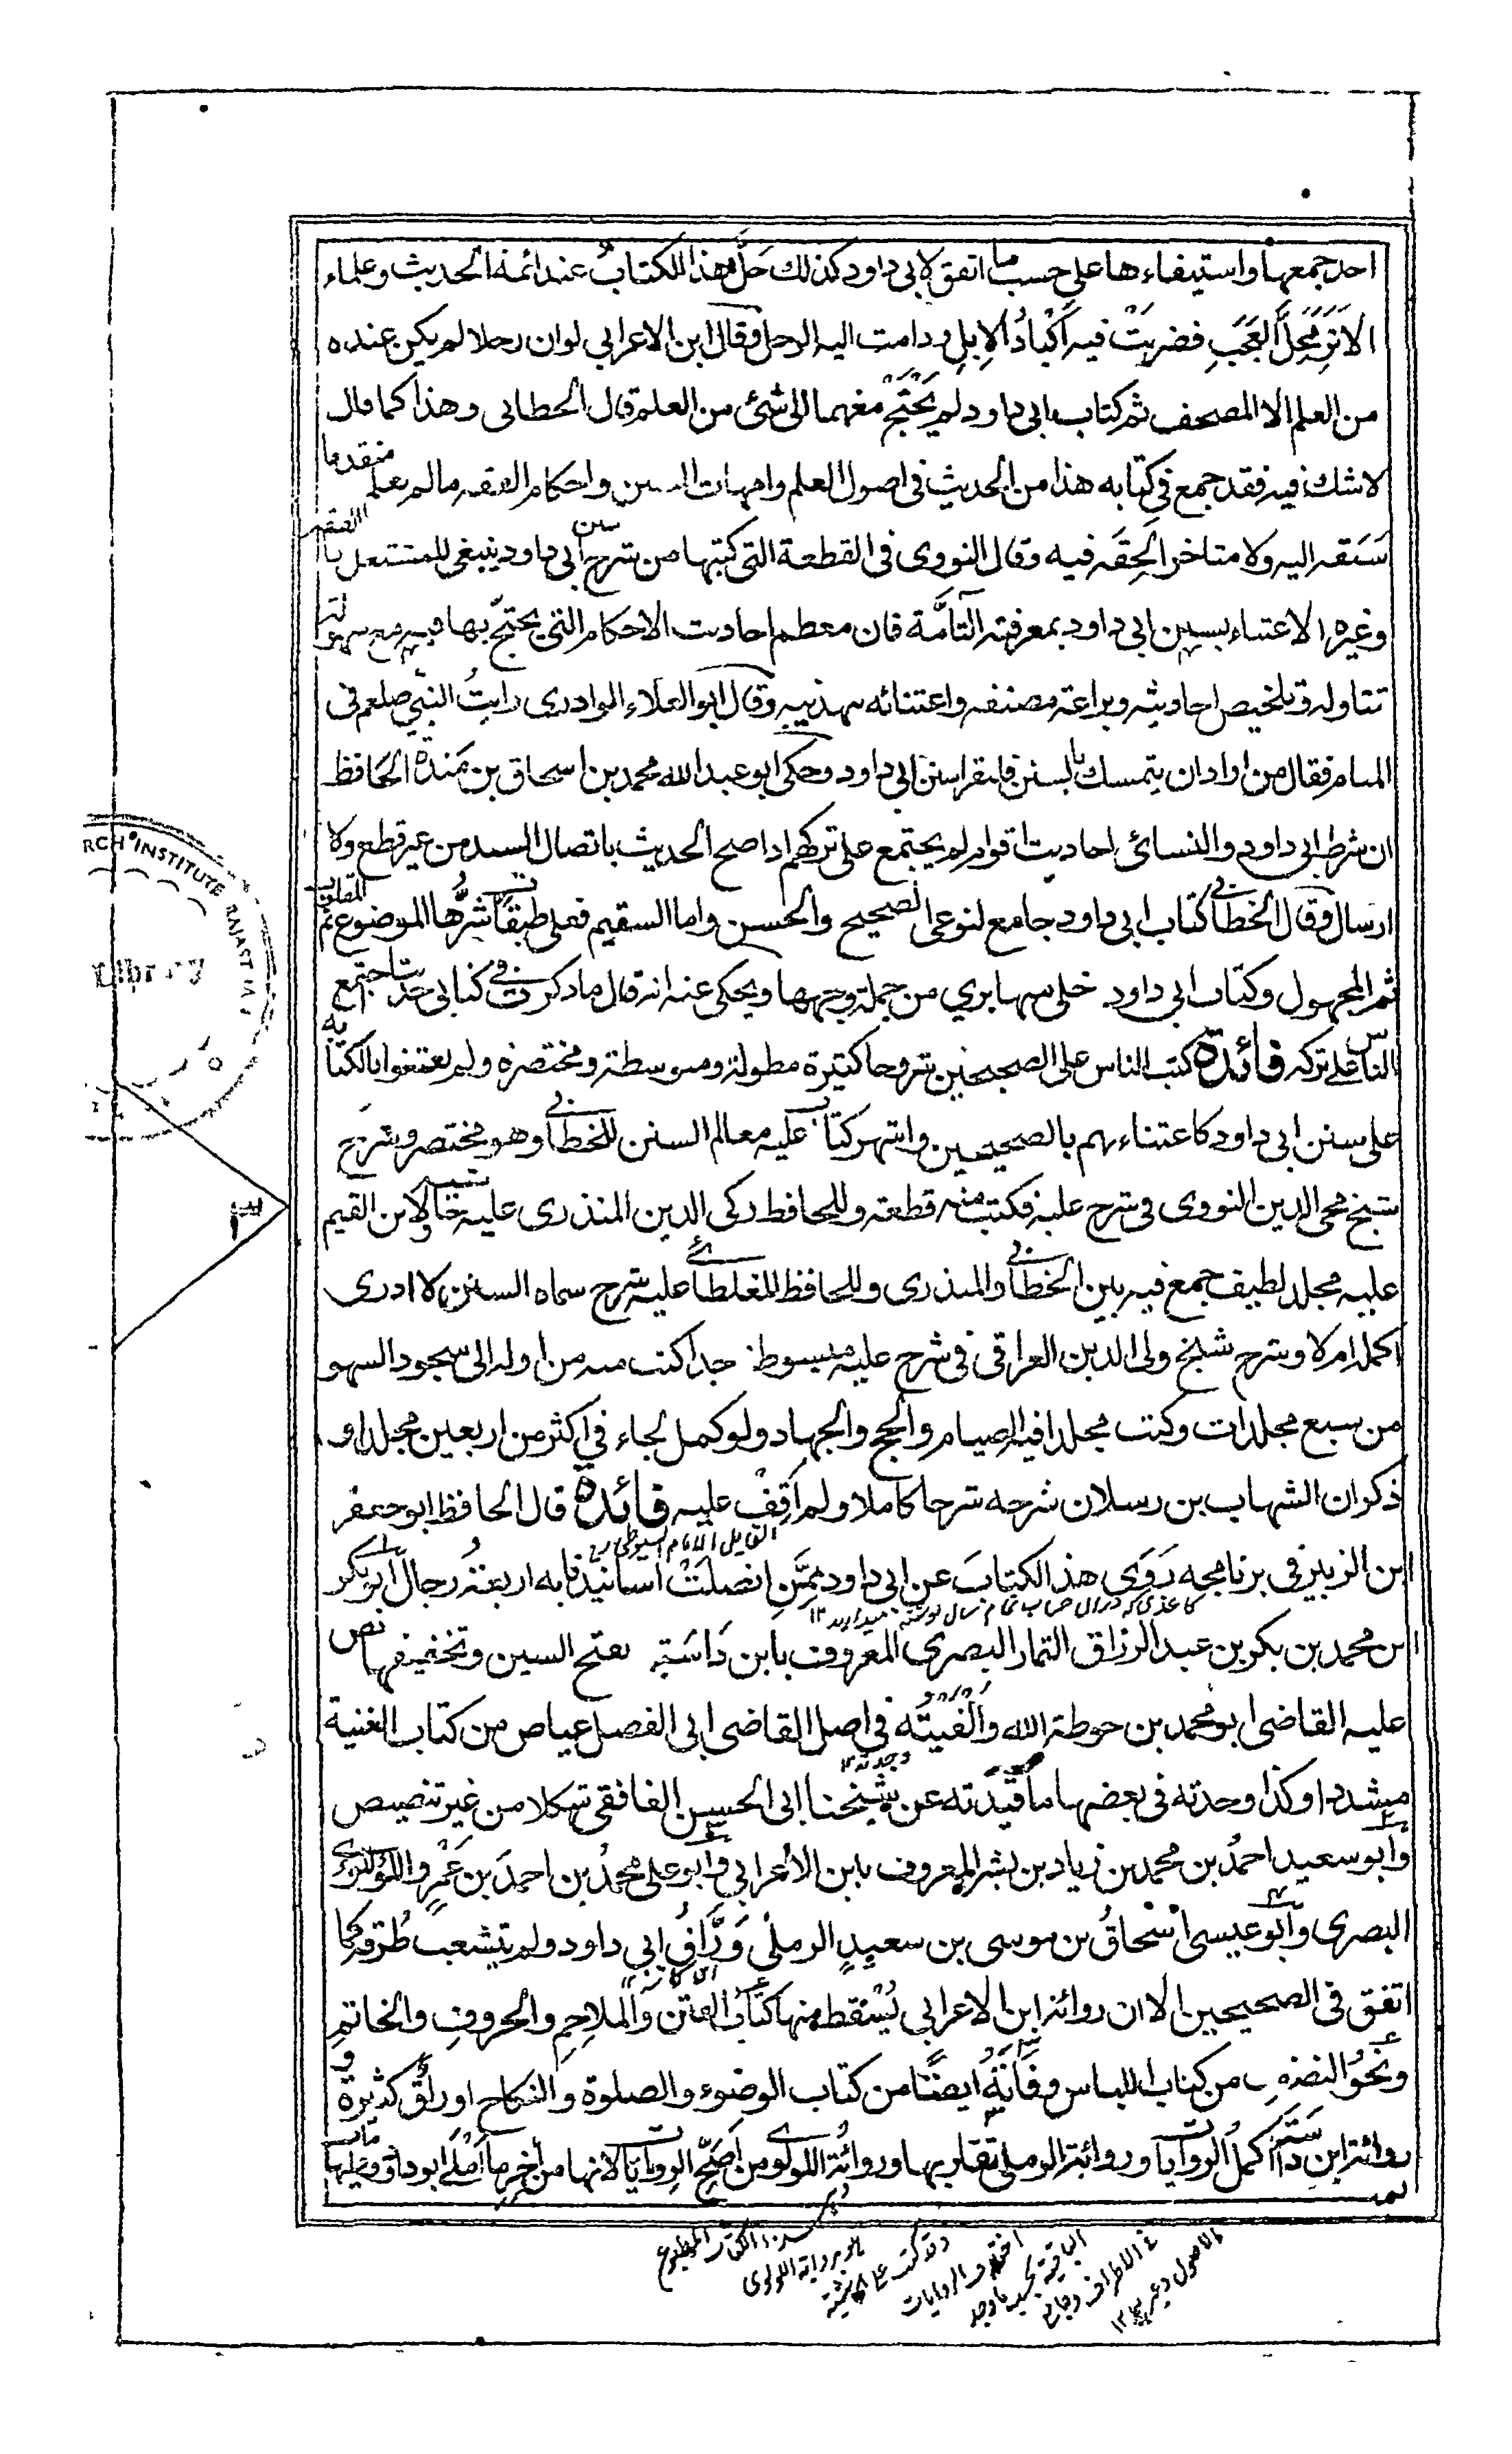 احد جمعها واستيفاءها على حسب ما اتفق لابي داود كذلك حل هذا الكتاب عند ائمة الحديث وعلماء
الاثر محل العجب فضربت فيه اكباد الابل ودامت اليه الرحل وقال ابن الاعرابي لو ان رجلا لم يكن عنده
من العلم الا المصحف ثم كتاب ابي داود لم يحتج معهما الى شئ من العلم قال الخطابى وهذا كما قال
لا شك فيه فقد جمع في كتابه هذا من الحديث فى اصول العلم وامهات السنن واحكام الفقه ما لم يعلم متقدما
سبقه اليه ولا متاخرا لحقه فيه وقال النووى فى القطعة التى كتبها من شرح سنن ابي داود ينبغى للمشتغل بالفقه
وغيره الاعتناء بسنن ابى داود بمعرفته التآمَّة فان معظم احاديث الاحكام التى يحتج بها فيه مع سهولة
تناوله وتلخيص احاديثه وبراعة مصنفه واعتنائه بتهذيبه وقال ابو العلاء الوادرى رايت النبي صلعم فى
المنام فقال من اراد ان يتمسك بالسنن فليقرا سنن ابى داود وحكى ابو عبد الله محمد بن اسحاق بن مندة الحافظ
ان شرط ابى داود والنسائى احاديث اقوام لم يجتمع على تركهم اذا صح الحديث باتصال السند من غير قطع ولا
ارسال وقال الخطابي كتاب ابى داود جامع لنوعى الصحيح والحسن واما السقيم فعلى طبقات شرها الموضوع ثم المقلوب
ثم المجهول وكتاب ابى داود خلى منها بري من جملة وجهها ويحكى عنه انه قال ما ذكرت فى كتابى حديثا اجتمع
الناس على تركه فائدة كتب الناس على الصحيحين شروحا كثيرة مطولة ومتوسطة ومختصرة ولم يعتنوا بالكتابة
على سنن ابى داود كاعتناءهم بالصحيحين واشتهر كتاب عليه معالم السنن للخطابي وهو مختصر وشرح
شيخ محى الدين النووى فى شرح عليه فكتب منه قطعة وللحافظ زكى الدين المنذرى عليه حاشية ولابن القيم
عليه مجلد لطيف جمع فيه بين الخطابي والمنذرى وللحافظ المغلطائے عليه شرح سماه السنن لا ادرى
اكمله ام لا وشرح شيخ ولى الدين العراقى فى شرح عليه مبسوط جدا كتب منه من اوله الى سجود السهو
من سبع مجلدات وكتب مجلدا فيه الصيام والحج والجهاد ولو كمل لجاء في اكثر من اربعين مجلدا و
ذكر ان الشهاب بن رسلان شرحه شرحا كاملا ولم اقف عليه فائدة قال الحافظ ابو جعفر
القايل الامام السيوطى رح
ابن الزبير فى برنامجه روى هذا الكتاب عن ابى داود ممن اتصلت اسانيدنا به اربعة رجال ابو بكر
كاغذى كه در ان حساب تمام سال نوشته ميدارند ١٢
بن محمد بن بكر بن عبد الرزاق التمار البصري المعروف بابن داسة بفتح السين وتخفيفها نص
عليه القاضى ابو محمد بن حوطة الله والفيته فى اصل القاضى ابى الفضل عياض من كتاب الغنية
وجدته ١٢
مشددا وكذا وجدته فى بعضها ما قيدته عن شيخنا ابى الحسن الغافقى شكلا من غير تنصيص
وابو سعيد احمد بن محمد بن زياد بن بشر المعروف بابن الاعرابي وابو على محمد بن احمد بن عمرو اللؤلؤى
البصرى وابو عيسى اسحاق بن موسى بن سعيد الرملى وراق ابى داود ولم يتشعب طرقه كما
اتفق فى الصحيحين الا ان رواية ابن الاعرابي يسقط منها كتاب الفتن والملاحم والحروف والخاتم
ونحو النصف من كتاب اللباس وفاته ايضا من كتاب الوضوء والصلوة والنكاح اوراق كثيرة و
رواية ابن داسة اكمل الروايات ورواية الرملى تقاربها ورواية اللولوى من اصح الروايات لانها من اخر ما املى ابو داود وعليها مات
هذا الكتاب المطبوع
هو برواية اللولوى
وقد كتب على حاشيته
اختلاف الروايات
الباقية بحسب ما وجد
فى الاطراف وجامع
الاصول وغيرهما ١٢
٣
RCH INSTITUTE RAJAST
Library